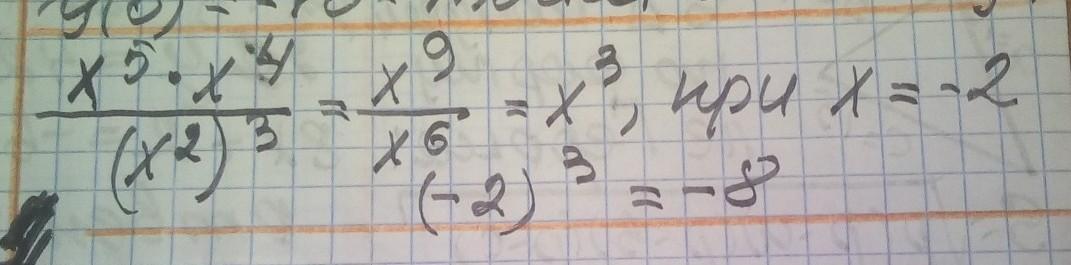 x⁵ · x⁴ / (x²)³ = x⁹ / x⁶ = x³, при x = -2
(-2)³ = -8